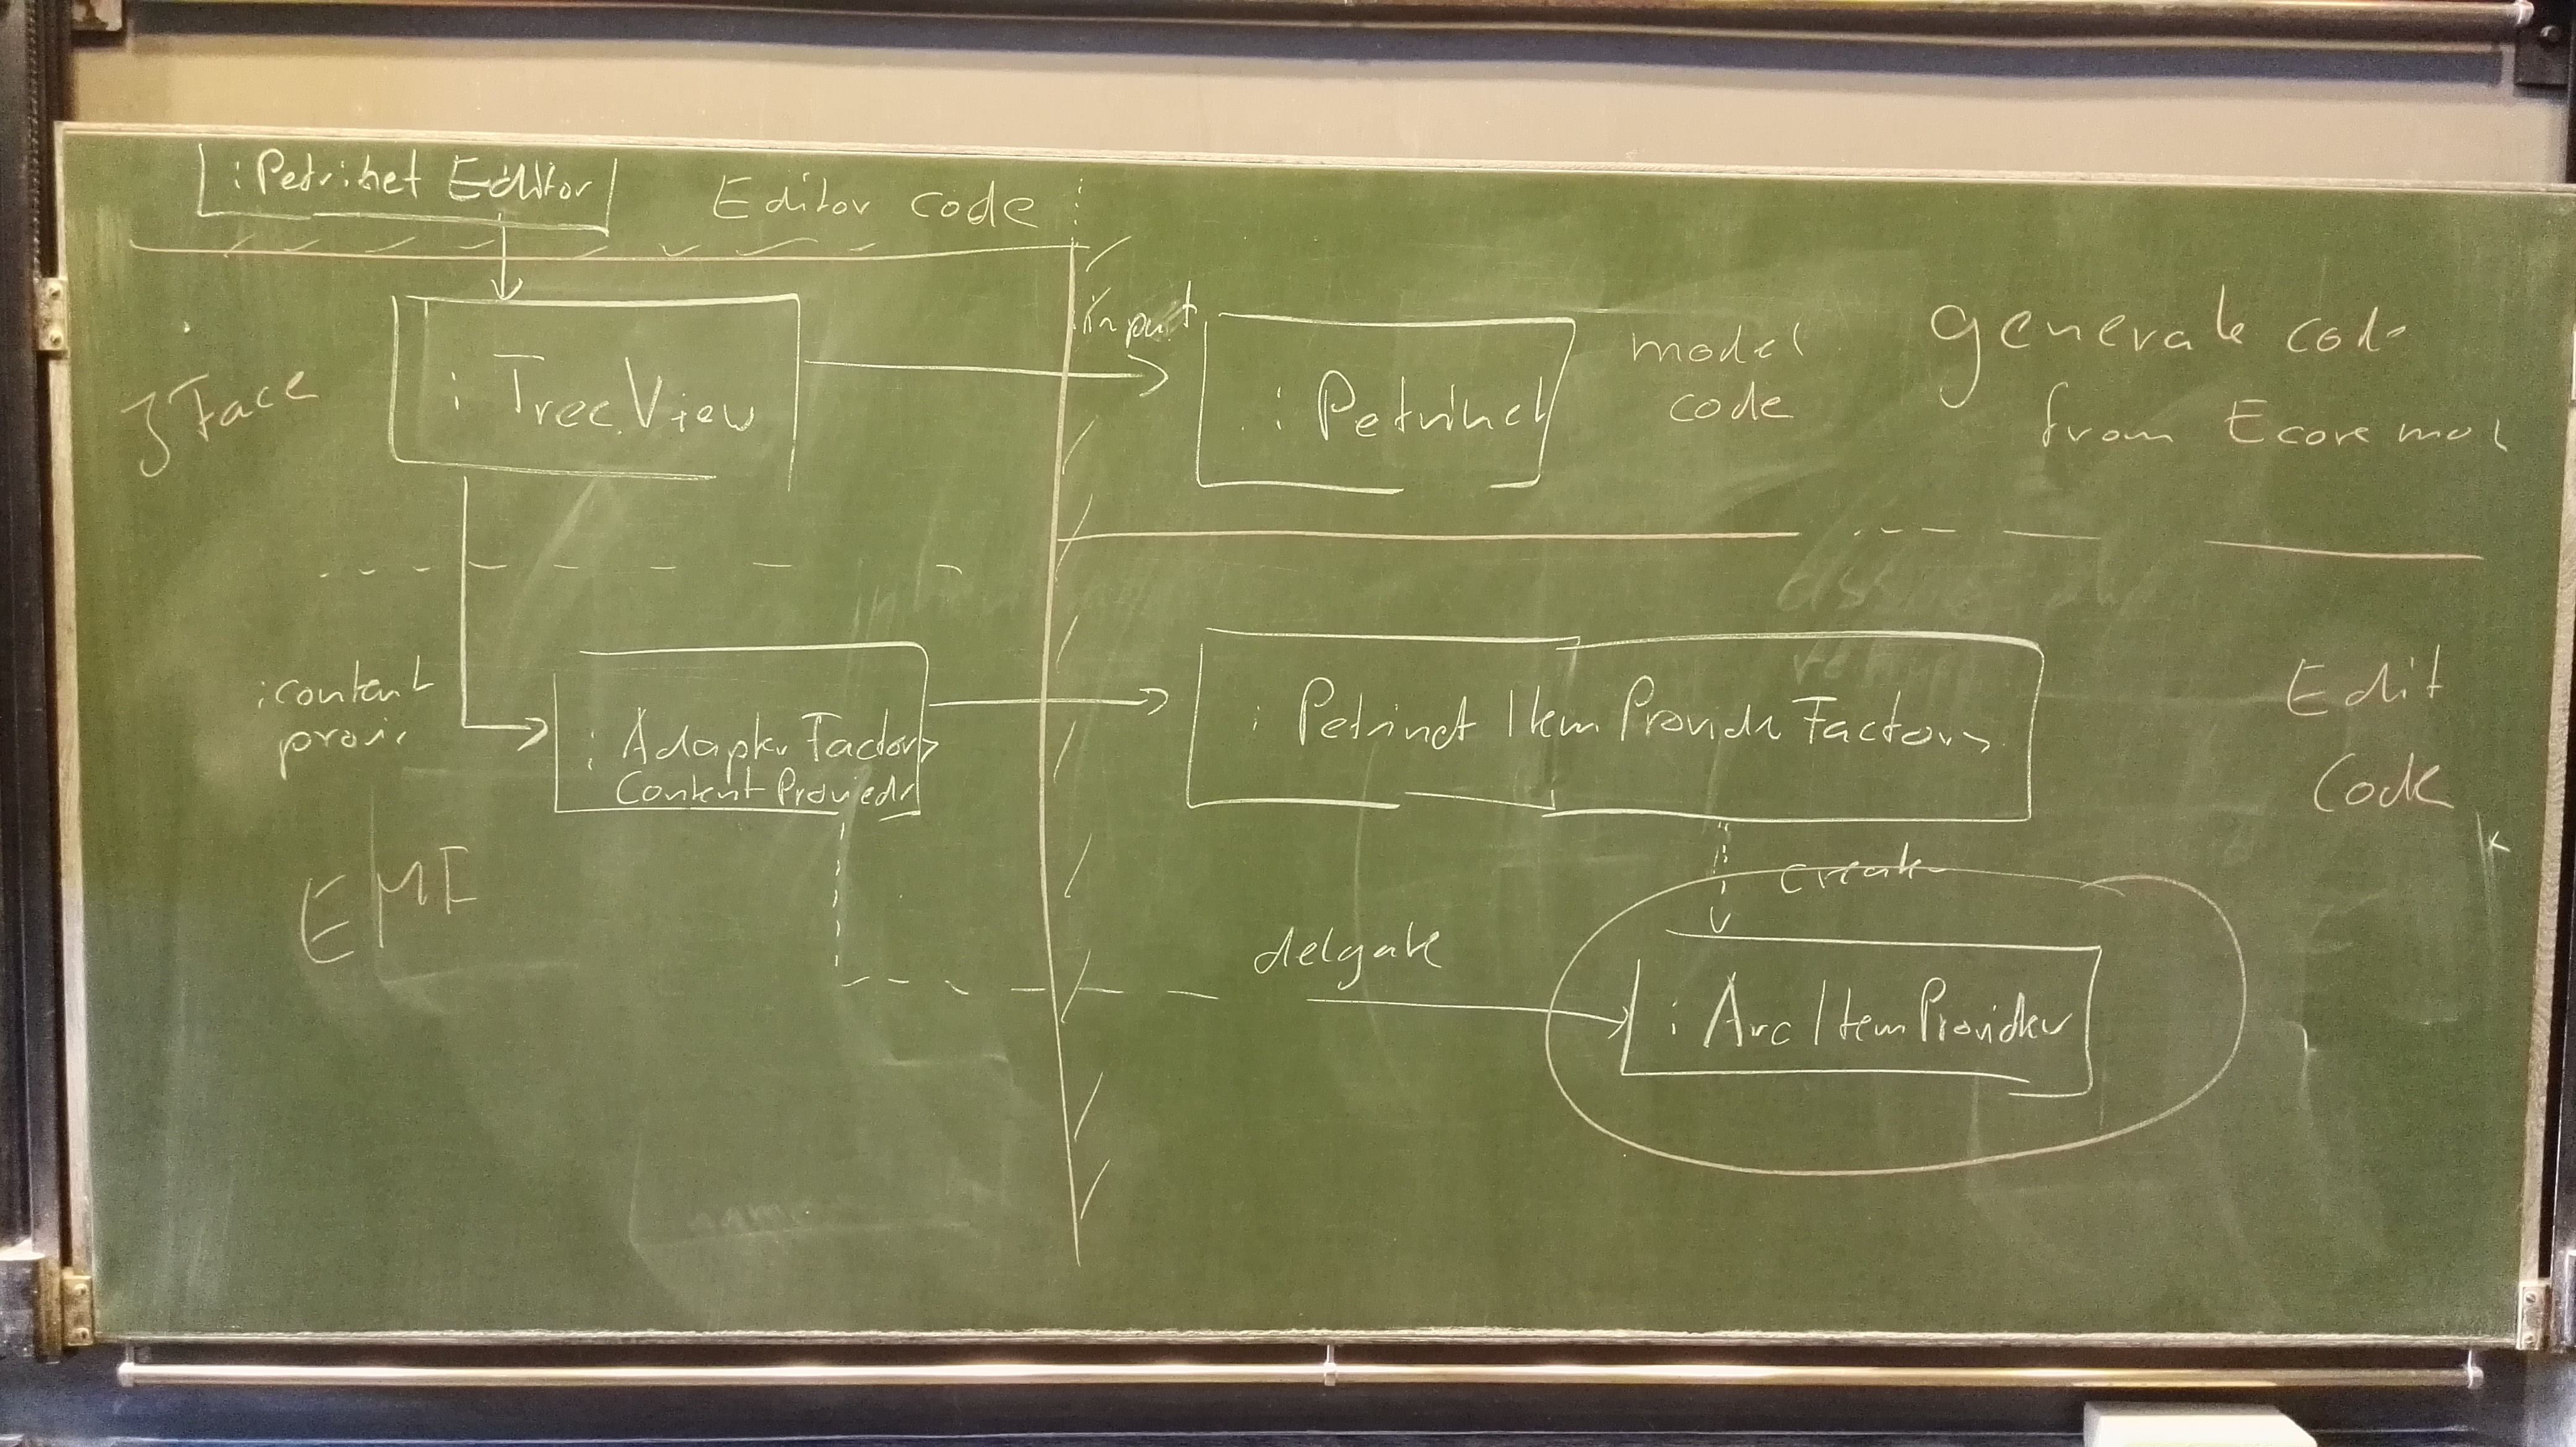 : Petrinet Editor
Editor code
JFace
: TreeView
input
: Petrinet
model
code
generate code
from Ecore mod
: content
provi.
: Adapter Factory
Content Provieder
: Petrinet Item Provider Factory
Edit
Code
EMF
create
delgate
: Arc Item Provider